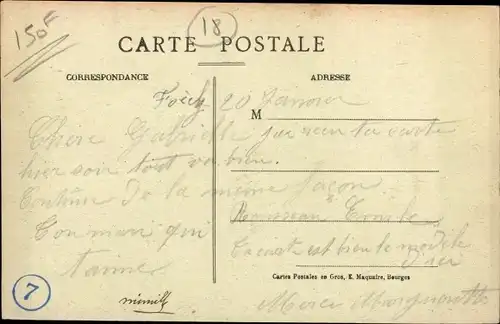 150F
18
CARTE POSTALE
CORRESPONDANCE
ADRESSE
Foëcy 20
M
Chère Gabrielle j'ai reçu ta carte
hier soir tout va bien.
Continue de la même façon
Ton mari qui
t'aime
Rousseau Emile
Ta carte est bien le modèle
7
Cartes Postales en Gros, E. Maquaire, Bourges
Merci Marguerite